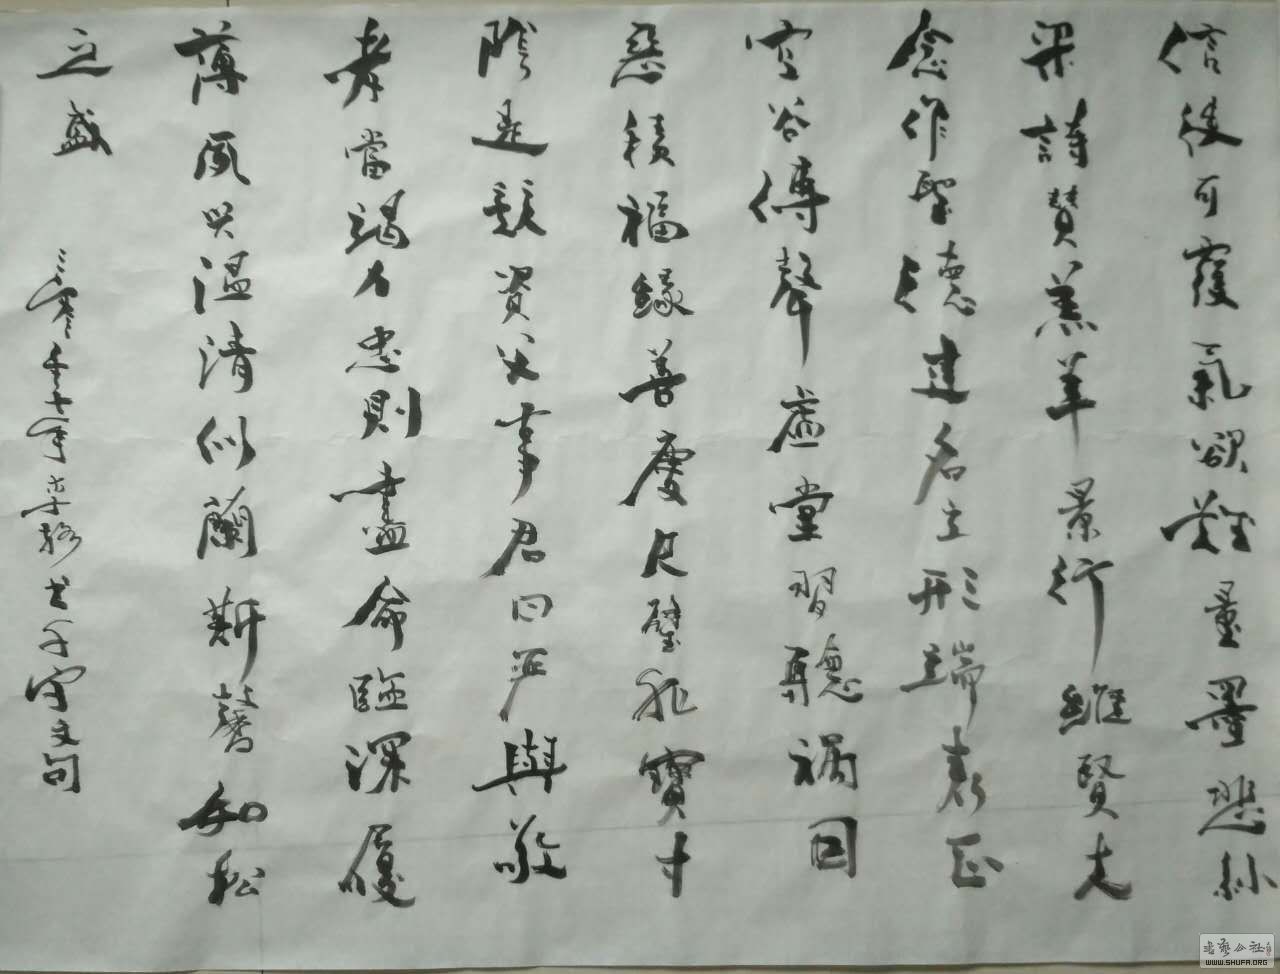 信使可覆氣欲難量墨悲絲
染詩賛羔羊景行維賢克
念作聖德建名立形端表正
空谷傳聲虛堂習聽禍因
惡積福緣善慶尺璧非寶寸
陰是競資父事君曰严與敬
孝當竭力忠則盡命臨深履
薄夙兴溫清似蘭斯馨如松
之盛
书千字文句
书艺公社
WWW.SHUFA.ORG